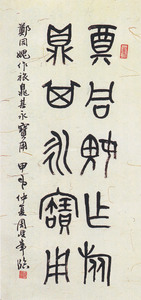 奠同媿乍旅
鼎其永寶用
鄭同媿作旅鼎其永寶用 仲夏周 臨